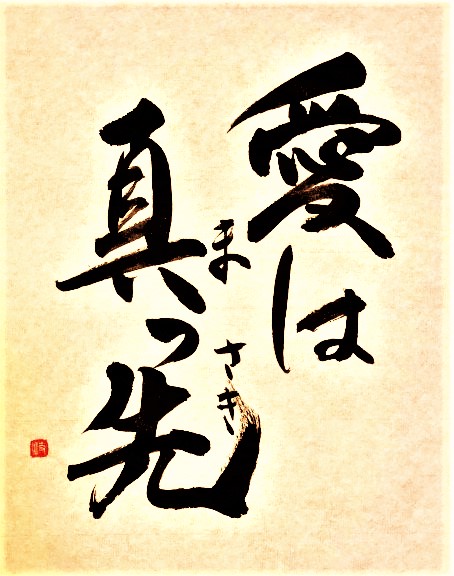 愛は
真っ先
まさき